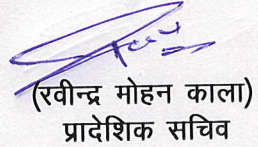 (रवीन्द्र मोहन काला)
प्रादेशिक सचिव